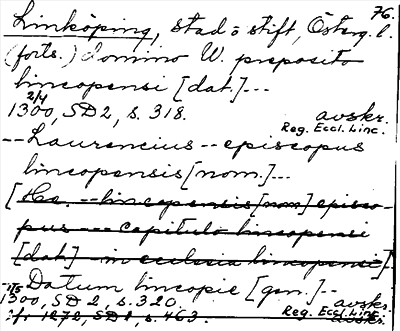 76.
Linköping, stad o stift, Österg. l.
(forts.) domino W. preposito
lincopensi [dat.]---
2/4
1300, SD 2, s. 318. avskr.
Reg. Eccl. Linc.
--Laurencius--episcopus
lincopensis [nom.]---
[Ha. --lincopensis [nom] episco-
pus --- capitulo lincopensi
[dat.] --- in ecclesia lincopensi].
--Datum lincopie [gen.]--
1300, SD 2, s. 320. avskr.
Reg. Eccl. Linc.
1272, SD 1, s. 463. avskr.